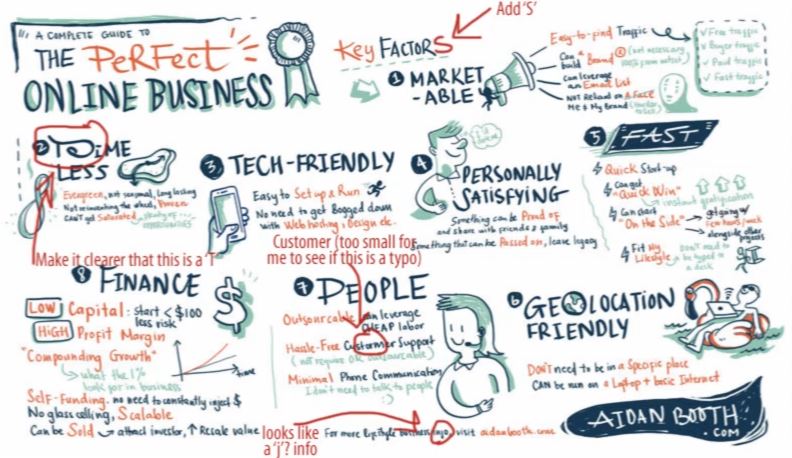 A COMPLETE GUIDE TO
THE PERFECT
ONLINE BUSINESS
Key FACTORS
Add 'S'
1 MARKET
-ABLE
Easy-to-find Traffic
Can build a Brand (not necessary
can leverage
an Email List
NOT Reliant on A Face
Me & My Brand
✓ Free traffic
✓ Buyer traffic
✓ Paid traffic
✓ Fast traffic
2 TIME
LESS
Evergreen, not seasonal, Long lasting
Not reinventing the wheel, Proven
CAN'T get Saturated, plenty of
Make it clearer that this is a 'T'
3 TECH-FRIENDLY
Easy to Set up & Run
No need to get Bogged down
with Web hosting, Design etc.
Customer (too small for
me to see if this is a typo)
4 PERSONALLY
SATISFYING
Something can be Proud of
and share with friends & family
Something that can be Passed on, leave legacy
5 FAST
Quick Start-up
Can get
"Quick Win"
instant gratification
Can start
"On the Side"
get going w/
few hours/week
alongside other
projects
Fit My
Lifestyle
Don't need to
be tyed to
a desk
8 FINANCE
LOW Capital: start < $100
less risk
HIGH Profit Margin
"Compounding Growth"
what the 1%
look for in business
time
$
Self-Funding. no need to constantly inject $
No glass ceiling, Scalable
Can be Sold attract investor, ↑ Resale value
7 PEOPLE
Outsourcable can leverage
CHEAP labor
Hassle-Free Customer Support
(not require OR outsourcable)
Minimal Phone Communication
I don't need to talk to people
:)
6 GEOLOCATION
FRIENDLY
DON'T need to be in a Specific place
CAN be run on a Laptop + basic Internet
looks like
a 'j'? info
For more business info, visit aidanbooth.com
AIDAN BOOTH
.COM